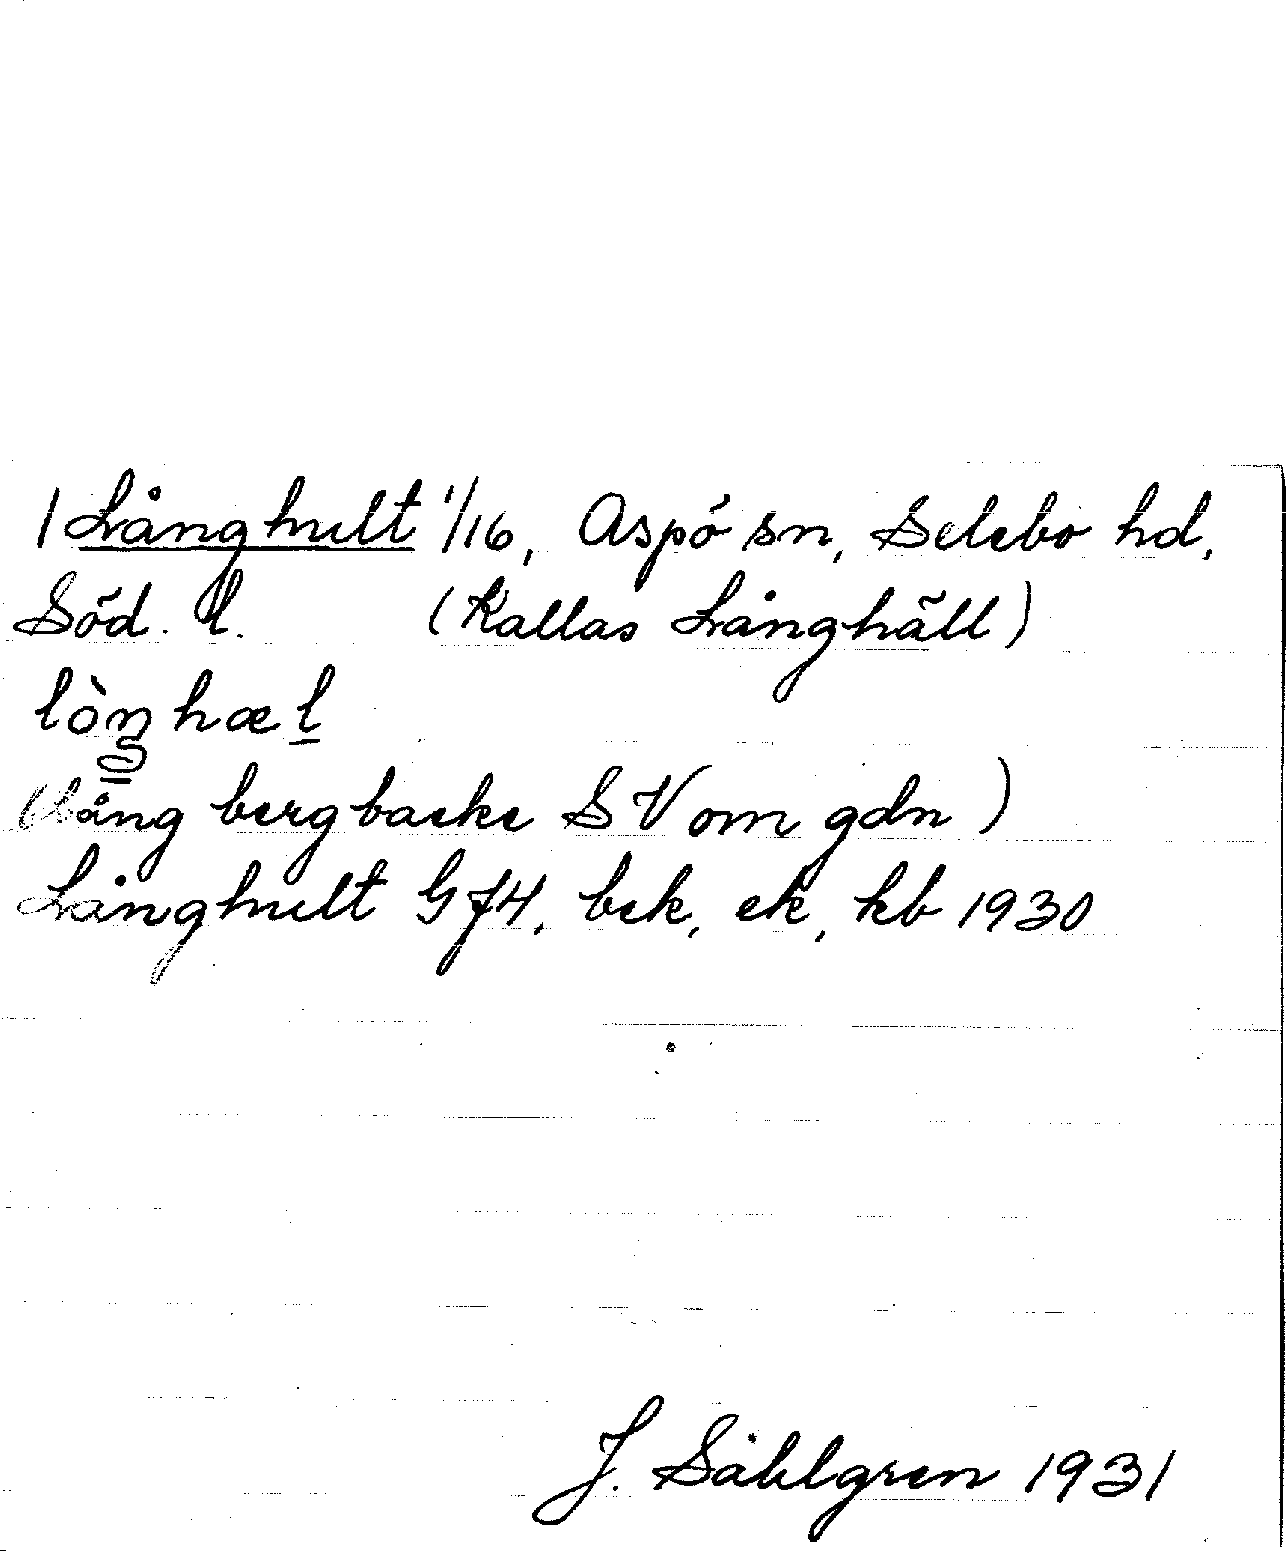 1 Långhult 1/16, Aspö sn, Selebo hd,
Söd. l. (Kallas Långhäll)
lòŋhæl
(lång bergbacke SV om gdn)
Långhult GJ4, bek, ek, kb 1930
J. Sahlgren 1931